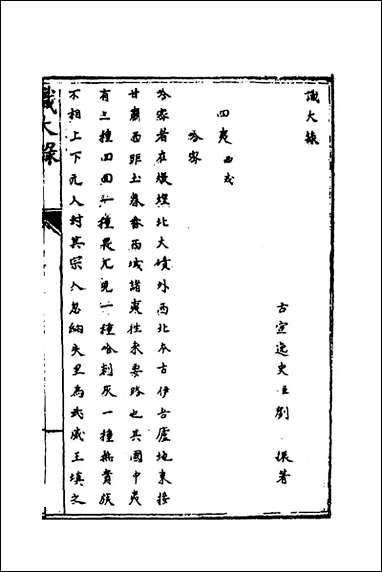 識大錄
古宣逸史臣劉 振著
四夷西戎
哈密
哈密者在燉煌北大磧外西北本古伊吾廬地東接
甘肅西距土魯番西域諸夷往來要路也其國中夷
有三種回回一種畏兀兒一種哈剌灰一種無貴族
不相上下元人封其宗人忽納失里為武威王填之
識大錄